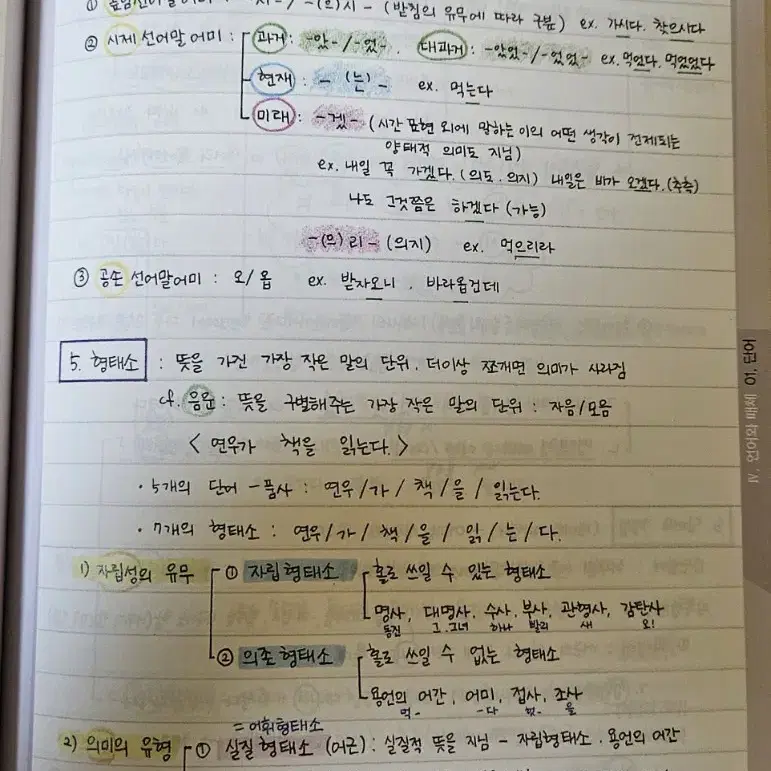 ① 높임 선어말 어미 : -시- / -(으)시- (받침의 유무에 따라 구분) ex. 가시다. 찾으시다
② 시제 선어말 어미 : 과거 : -았-/-었-. 대과거 : -았었-/-었었- ex. 먹었다. 먹었었다
현재 : -(는)- ex. 먹는다
미래 : -겠- (시간 표현 외에 말하는 이의 어떤 생각이 전제되는
양태적 의미도 지님)
ex. 내일 꼭 가겠다. (의도. 의지) 내일은 비가 오겠다. (추측)
나도 그것쯤은 하겠다 (가능)
-(으)리- (의지) ex. 먹으리라
③ 공손 선어말어미 : 오/옵 ex. 받자오니, 바라옵건데
5. 형태소 : 뜻을 가진 가장 작은 말의 단위. 더이상 쪼개면 의미가 사라짐
cf. 음운 : 뜻을 구별해주는 가장 작은 말의 단위 : 자음/모음
< 연우가 책을 읽는다. >
· 5개의 단어 - 품사 : 연우/가/책/을/읽는다.
· 7개의 형태소 : 연우/가/책/을/읽/는/다.
1) 자립성의 유무 ① 자립 형태소 홀로 쓰일 수 있는 형태소
명사, 대명사, 수사, 부사, 관형사, 감탄사
동전 그.그녀 하나 빨리 새 오!
② 의존 형태소 홀로 쓰일 수 없는 형태소
용언의 어간, 어미, 접사, 조사
먹- -다 헛- 을
= 어휘형태소
2) 의미의 유형 ① 실질 형태소 (어근) : 실질적 뜻을 지님 - 자립형태소. 용언의 어간
Ⅳ. 언어와 매체 01. 단어